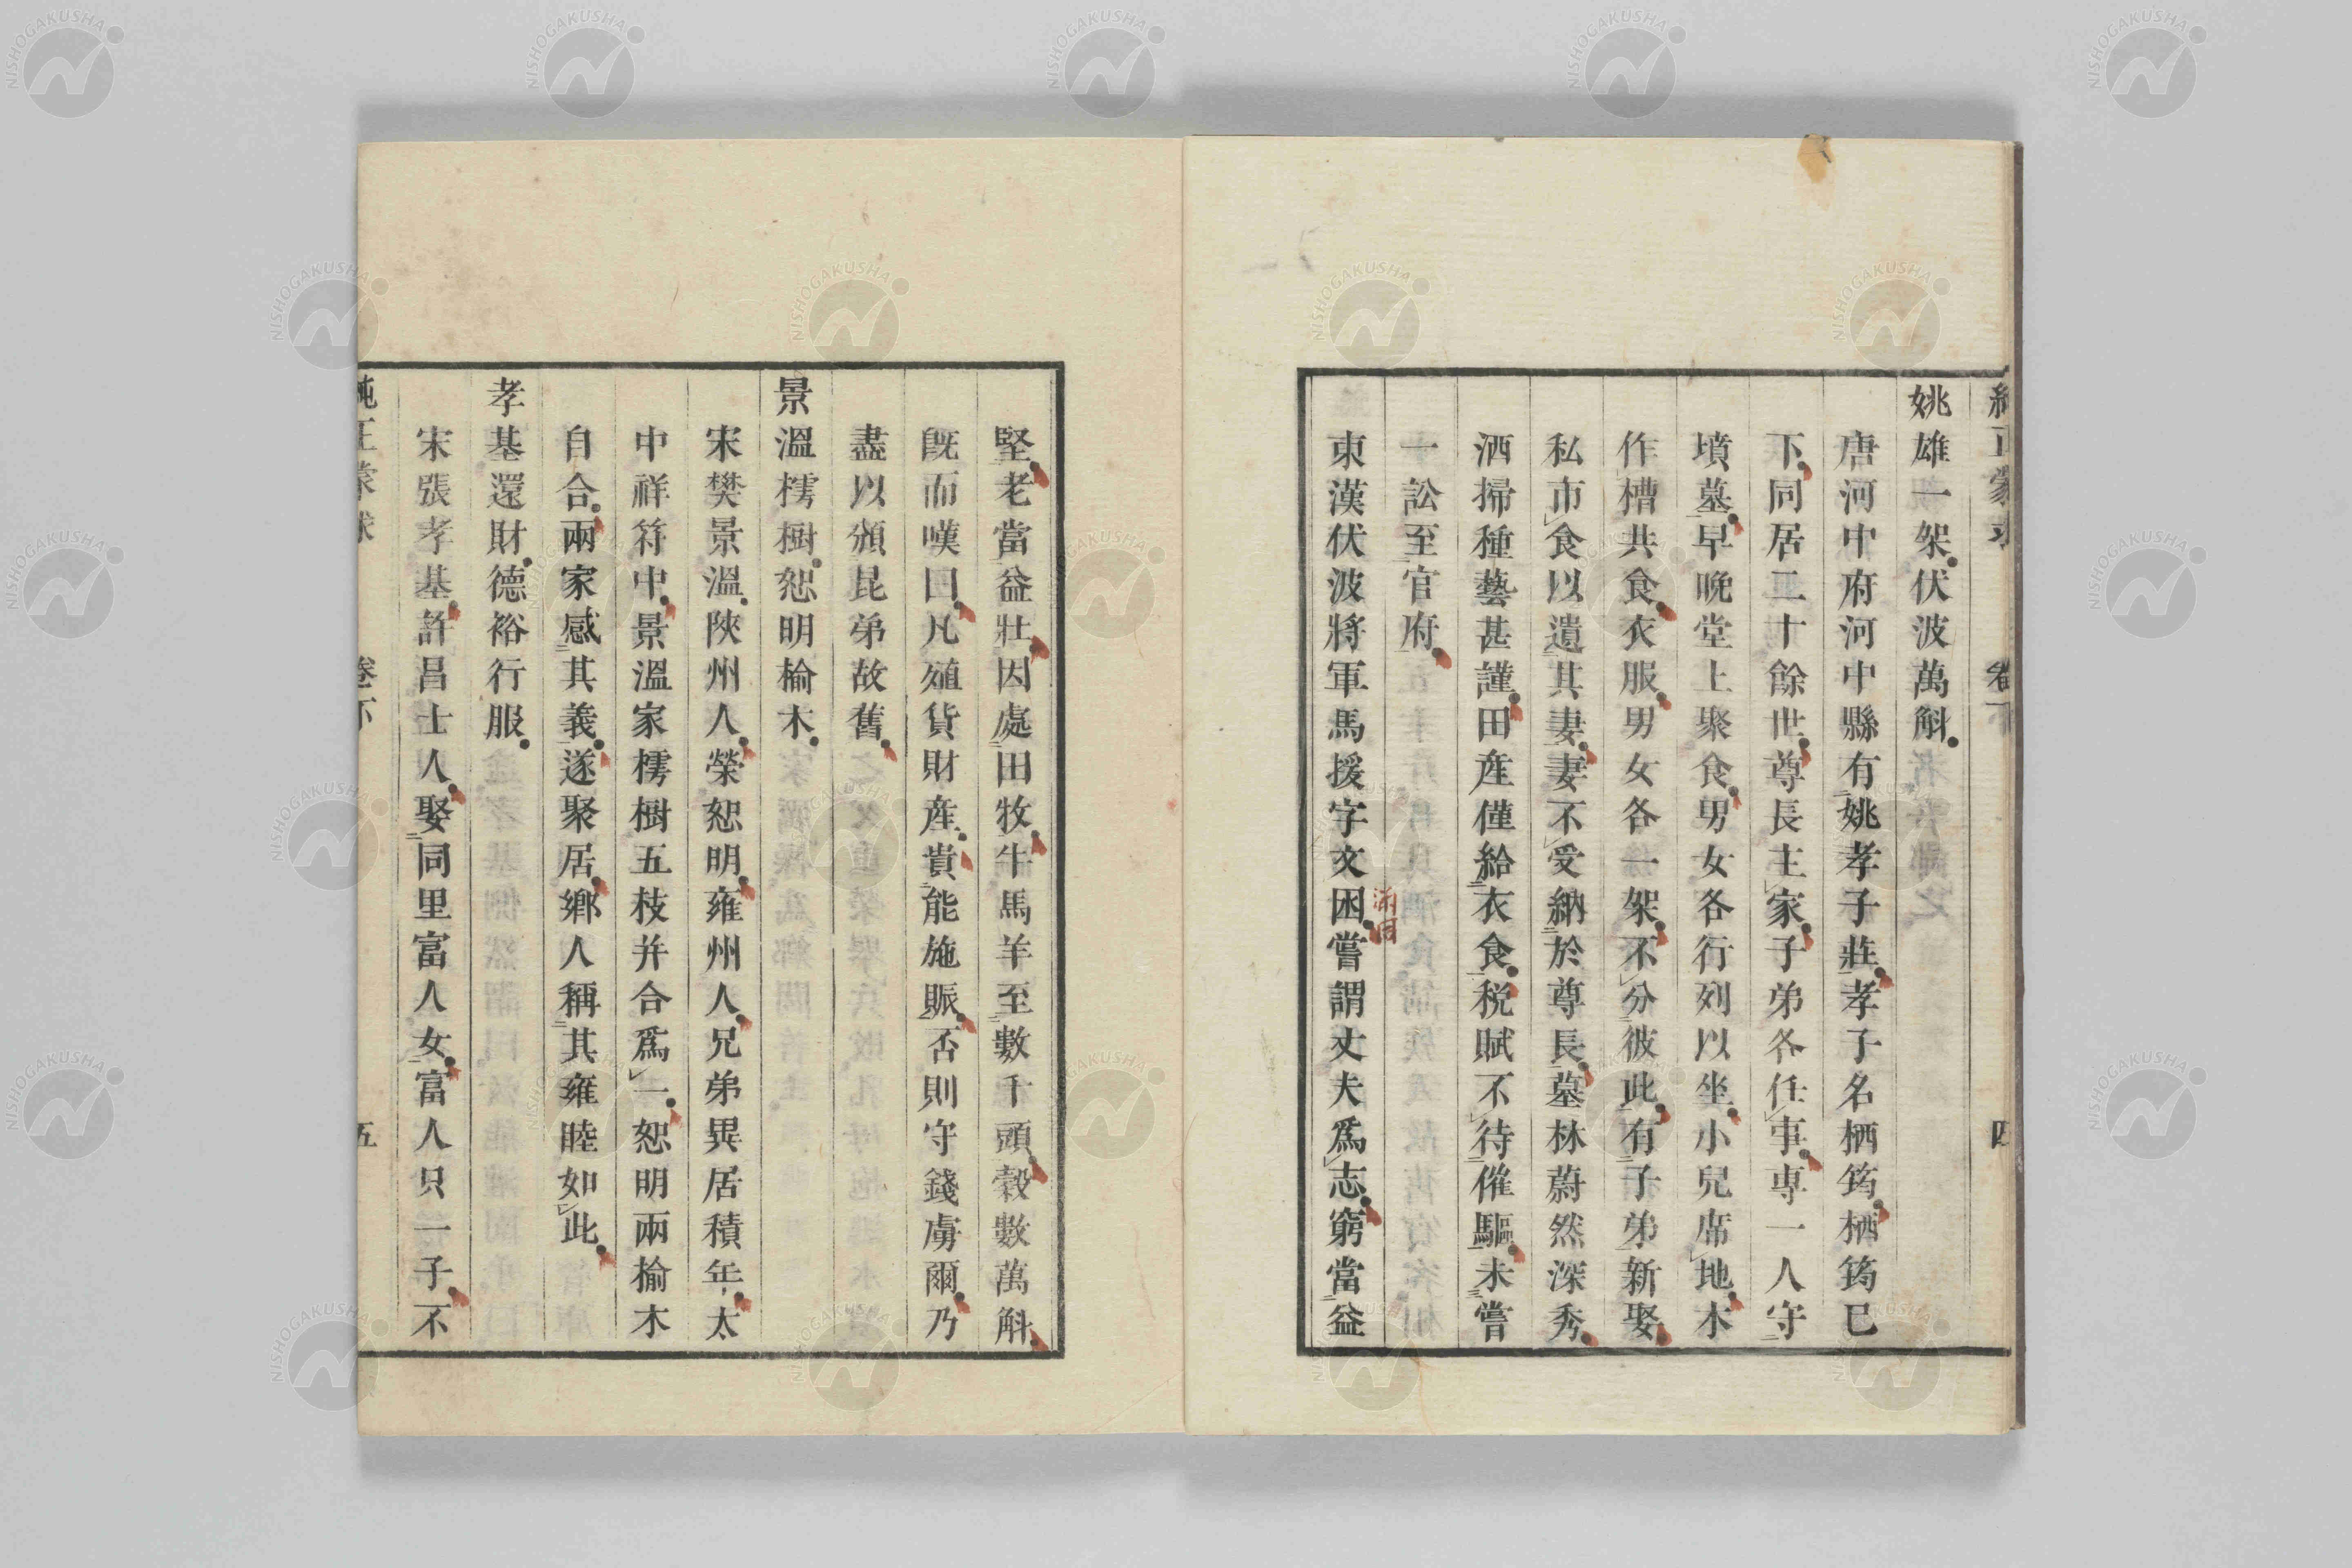 純正蒙求 卷下 四
姚雄一架伏波萬斛
唐河中府河中縣有姚孝子莊孝子名栖筠栖筠巳
下同居二十餘世尊長主家子弟各任事専一人守
墳墓早晩堂上聚食男女各行列以坐小兒席地木
作槽共食衣服男女各一架不分彼此有子弟新娶
私市食以遺其妻妻不受納於尊長墓林蔚然深秀
洒掃種藝甚謹田産僅給衣食税賦不待催驅未嘗
一訟至官府
東漢伏波將軍馬援字文困嘗謂丈夫爲志窮當益
堅老當益壯因處田牧牛馬羊至數千頭穀數萬斛
既而嘆曰凡殖貨財産貴能施賑否則守錢虜爾乃
盡以頒昆弟故舊
景溫樗樹恕明楡木
宋樊景溫陝州人榮恕明雍州人兄弟異居積年太
中祥符中景溫家樗樹五枝并合爲一恕明兩楡木
自合兩家感其義遂聚居鄉人稱其雍睦如此
孝基還財德裕行服
宋張孝基許昌士人娶同里富人女富人只一子不
純正蒙求 卷下 五
NISHOGAKUSHA